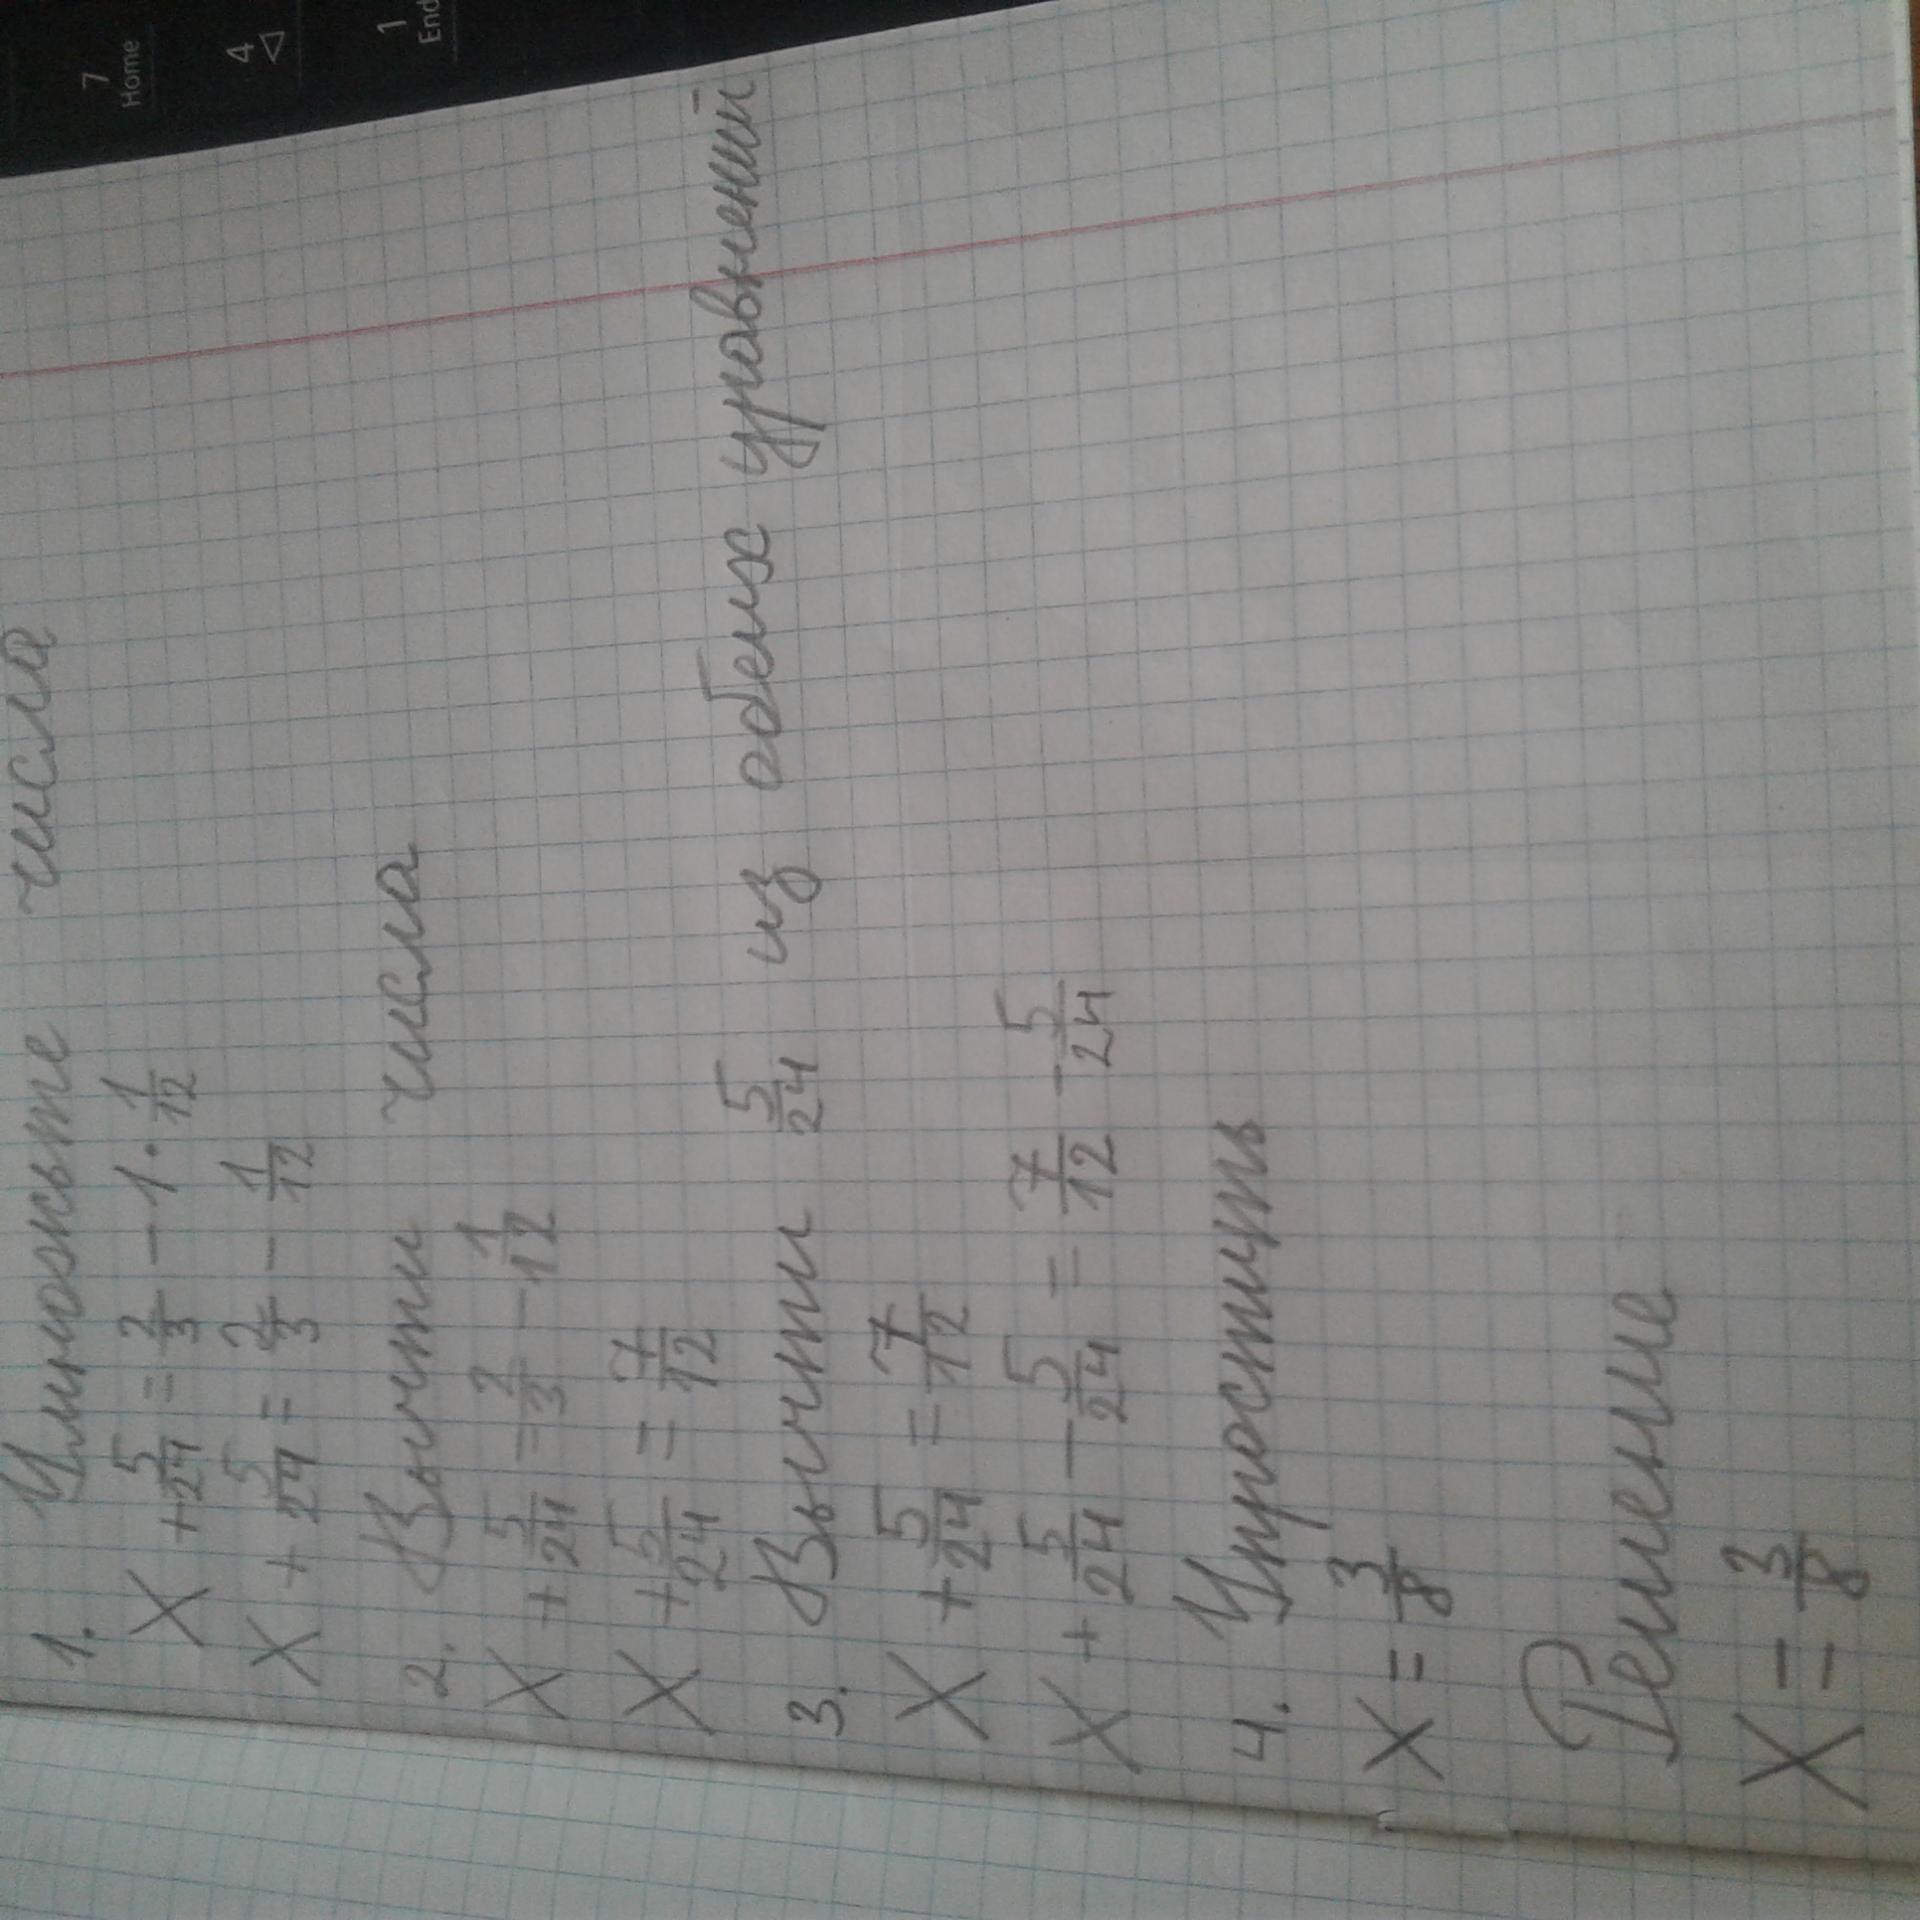 1. Умножьте числа
X + 5/24 = 2/3 - 1 · 1/12
X + 5/24 = 2/3 - 1/12
2. Вычти числа
X + 5/24 = 2/3 - 1/12
X + 5/24 = 7/12
3. Вычти 5/24 из обеих уравнений
X + 5/24 = 7/12
X + 5/24 - 5/24 = 7/12 - 5/24
4. Упростить
X = 3/8
Решение
X = 3/8
7
Home
4
◁
1
End